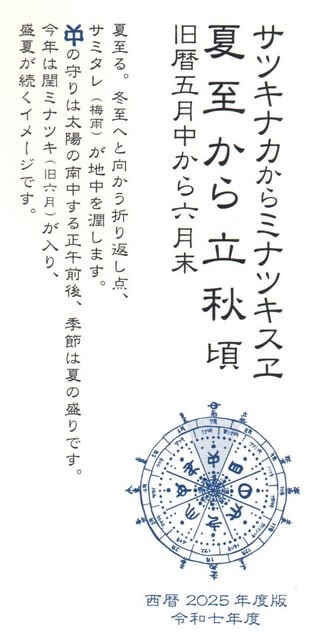 サツキナカからミナツキスヱ
夏至から立秋頃
旧暦五月中から六月末
夏至る。冬至へと向かう折り返し点、
サミタレ（梅雨）が地中を潤します。
の守りは太陽の南中する正午前後、季節は夏の盛りです。
今年は閏ミナツキ（旧六月）が入り、
盛夏が続くイメージです。
西暦 2025 年度版
令和七年度